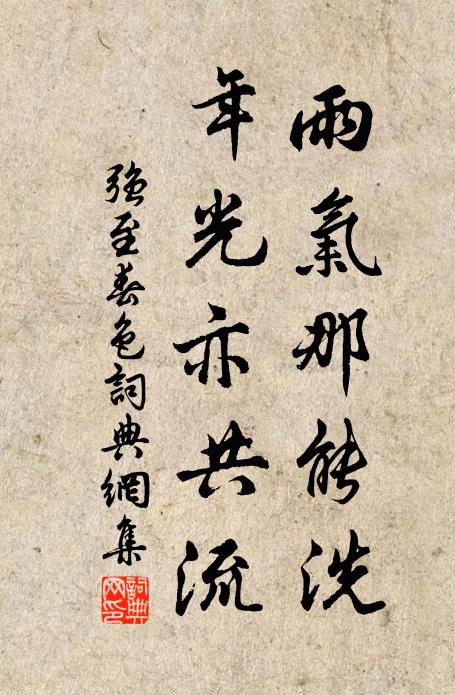 雨氣那能洗
年光亦共流
強至春色詞典網集
詞典網印